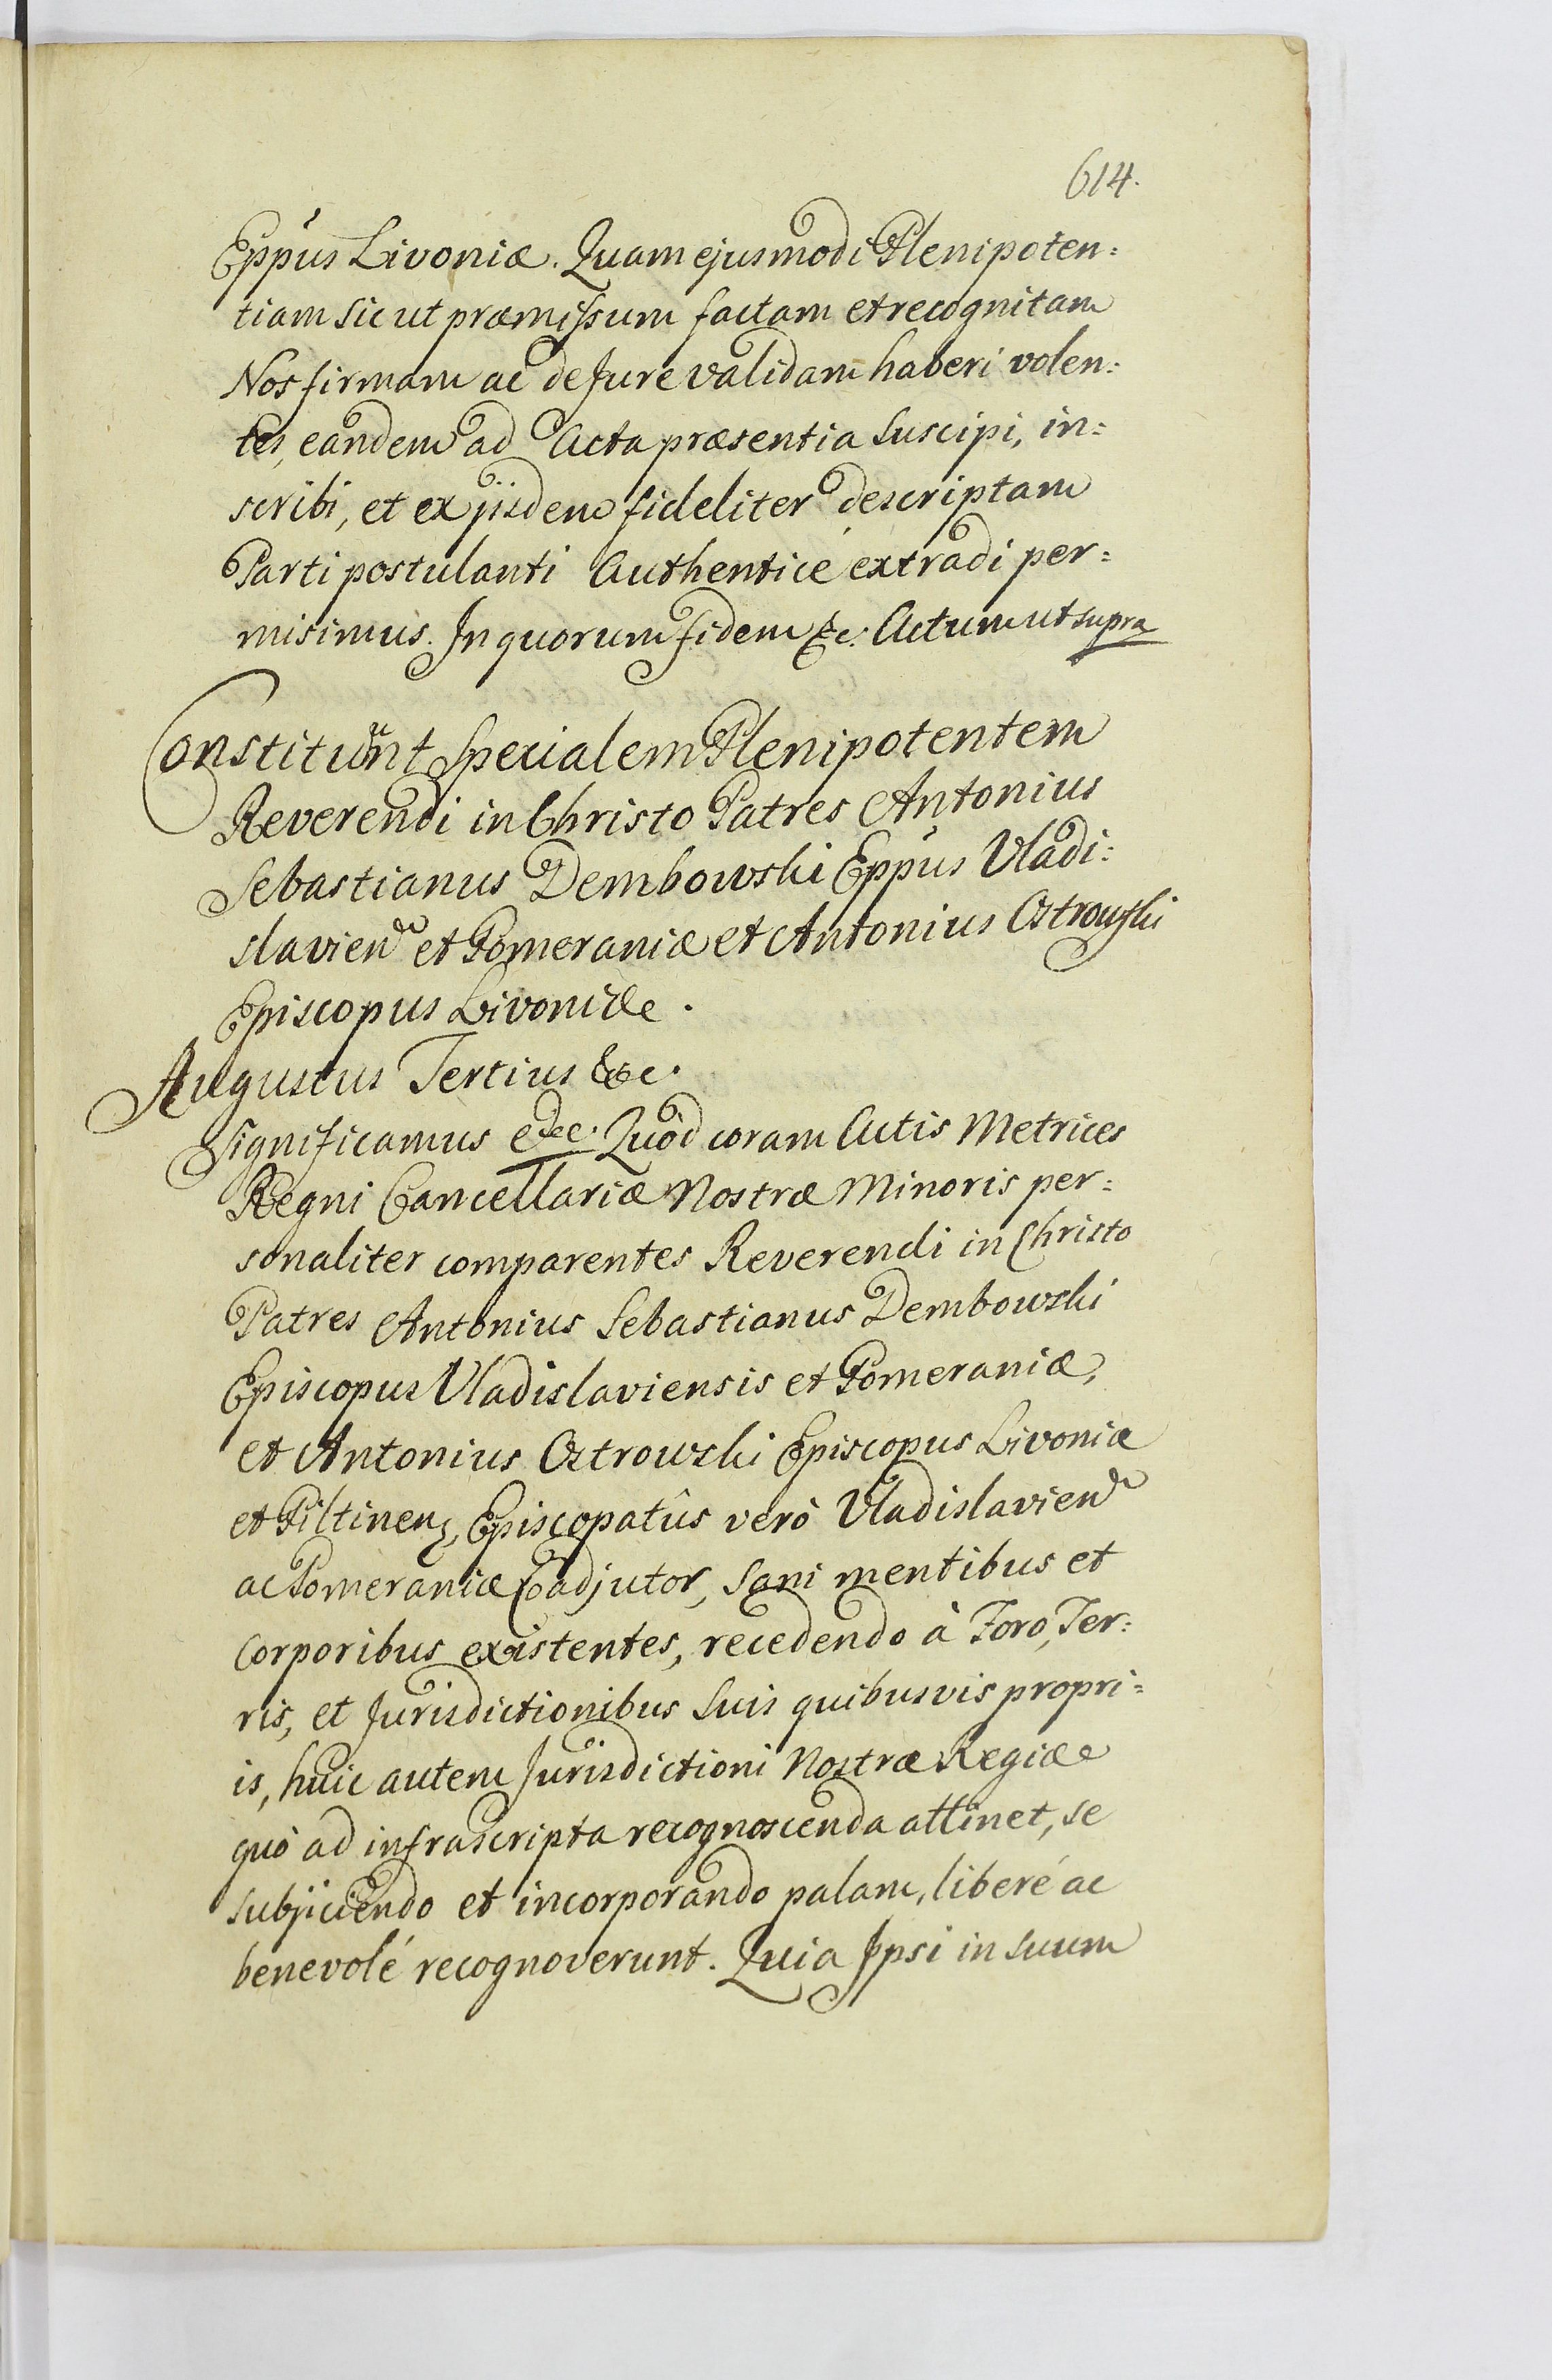 614.
Eppus Livoniæ. Quam ejusmodi Plenipoten:
tiam sicut præmissum factam et recognitam
Nos firmam ac de Jure validam haberi volen:
tes, eandem ad Acta præsentia suscipi, in:
scribi, et ex ijsdem fideliter descriptam
Parti postulanti Authenticé extradi per:
misimus. In quorum fidem &c. Actum ut supra
Constituunt Specialem Plenipotentem
Reverendi in Christo Patres Antonius
Sebastianus Dembowski Eppus Vladi:
slavien et Pomeraniæ et Antonius Ostrowski
Episcopus Livoniæ.
Augustus Tertius &c.
Significamus &c. Quòd coram Actis Metrices
Regni Cancellariæ Nostræ Minoris per:
sonaliter comparentes Reverendi in Christo
Patres Antonius Sebastianus Dembowski
Episcopus Vladislaviensis et Pomeraniæ,
et Antonius Ostrowski Episcopus Livoniæ
et Piltinen, Episcopatûs verò Vladislavien
ac Pomeraniæ Coadjutor, Sani mentibus et
corporibus existentes, recedendo à Foro, Ter:
ris, et Jurisdictionibus Suis quibusvis propri:
is, huic autem Jurisdictioni Nostræ Regiæ
quò ad infrascripta recognoscenda attinet, se
subjiciendo et incorporando palam, liberé ac
benevolé recognoverunt. Quia Ipsi in suum